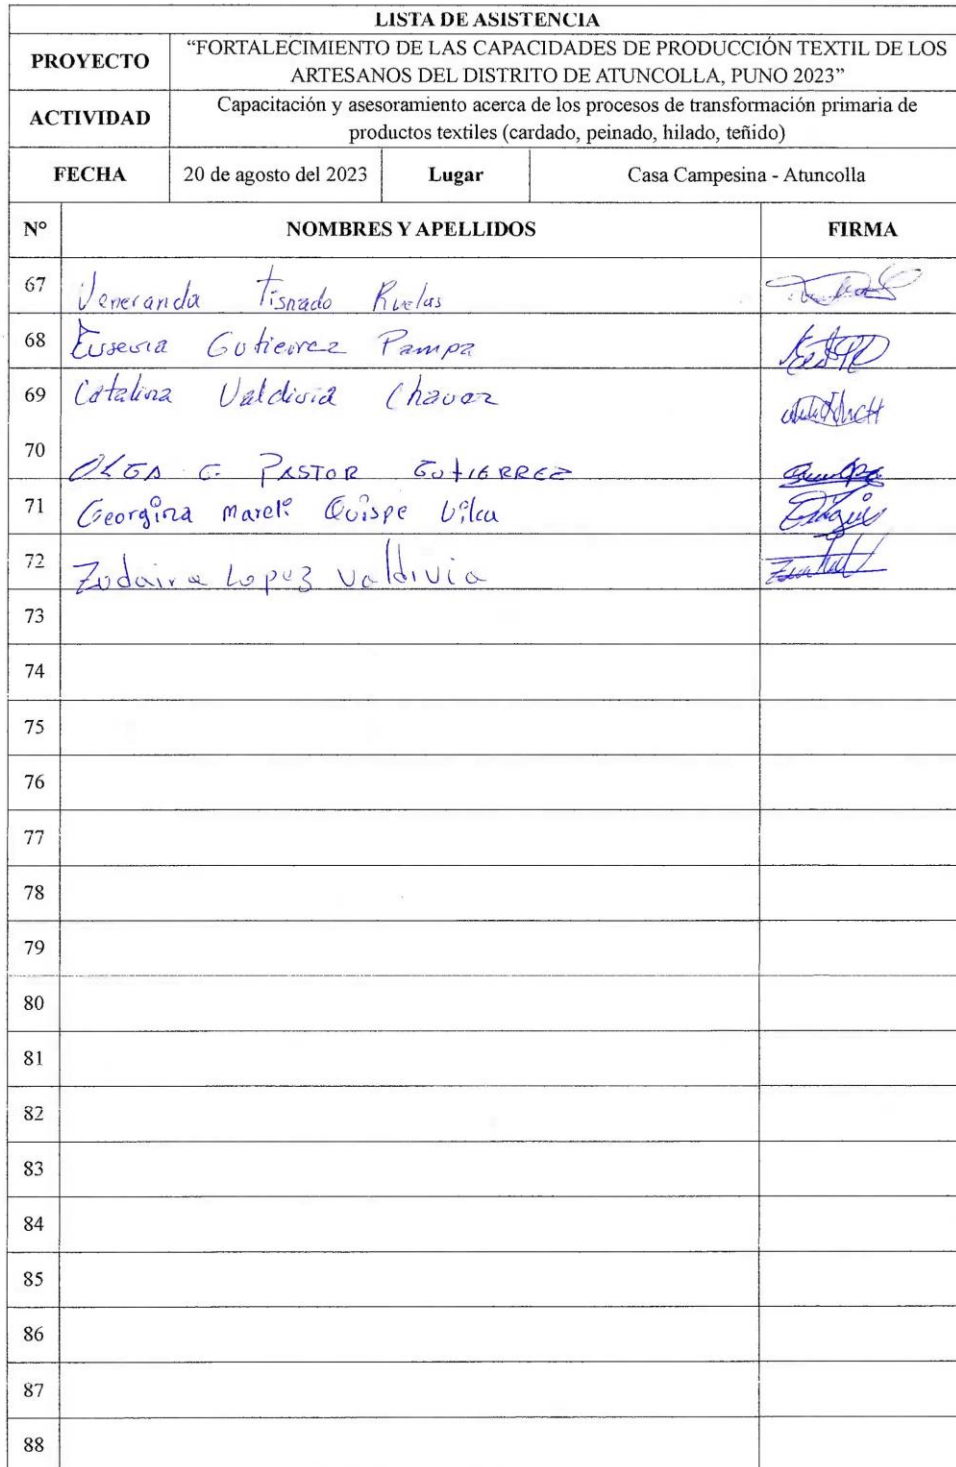 LISTA DE ASISTENCIA
PROYECTO
“FORTALECIMIENTO DE LAS CAPACIDADES DE PRODUCCIÓN TEXTIL DE LOS
ARTESANOS DEL DISTRITO DE ATUNCOLLA, PUNO 2023”
ACTIVIDAD
Capacitación y asesoramiento acerca de los procesos de transformación primaria de
productos textiles (cardado, peinado, hilado, teñido)
FECHA 20 de agosto del 2023 Lugar Casa Campesina - Atuncolla
N° NOMBRES Y APELLIDOS FIRMA
67 Veneranda Tisnado Ruelas
68 Eusevia Gutierrez Pampa
69 Catalina Valdivia Chavez
70 OLGA G. PASTOR GUTIERREZ
71 Georgina Mareli Quispe Vilca
72 Zudaira Lopez Valdivia
73
74
75
76
77
78
79
80
81
82
83
84
85
86
87
88